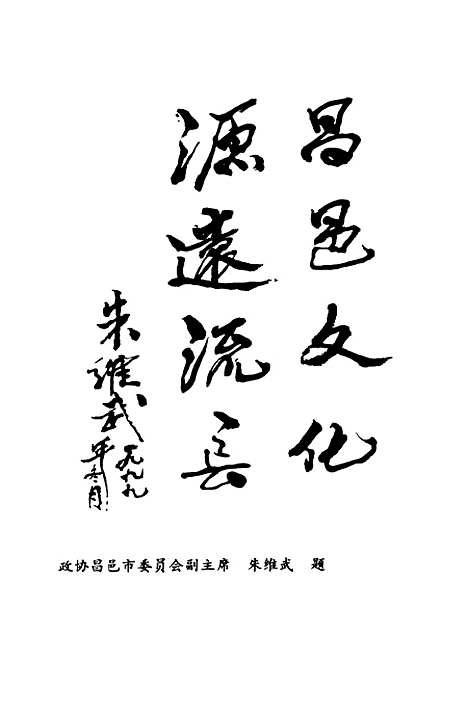 昌邑文化
源遠流长
朱維武
一九九九
年冬月
政协昌邑市委员会副主席 朱维武 题